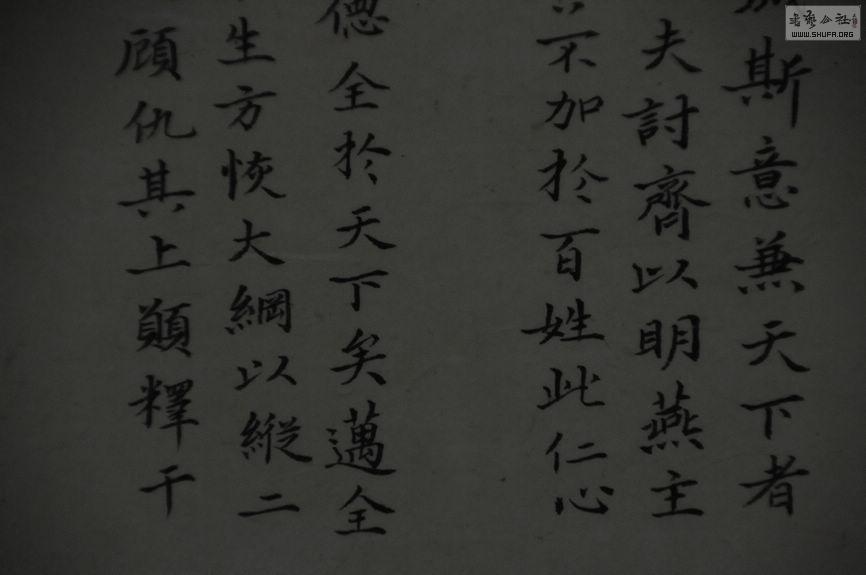 斯意兼天下者
夫討齊以明燕主
不加於百姓此仁心
德全於天下矣邁全
生方恢大綱以縱二
顧仇其上願釋干
書藝公社
WWW.SHUFA.ORG